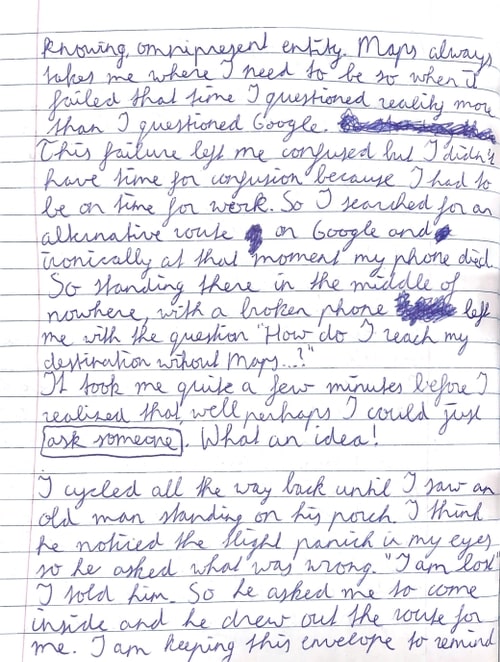 knowing, omnipresent entity. Maps always
takes me where I need to be so when it
failed that time I questioned reality more
than I questioned Google.
This failure left me confused but I didn't
have time for confusion because I had to
be on time for work. So I searched for an
alternative route on Google and
ironically at that moment my phone died.
So standing there in the middle of
nowhere, with a broken phone left
me with the question "How do I reach my
destination without Maps...?"
It took me quite a few minutes before I
realized that, well perhaps I could just
ask someone. What an idea!
I cycled all the way back until I saw an
old man standing on his porch. I think
he noticed the slight panick in my eyes
so he asked what was wrong. "I am lost"
I told him. So he asked me to come
inside and he drew out the route for
me. I am keeping this envelope to remind